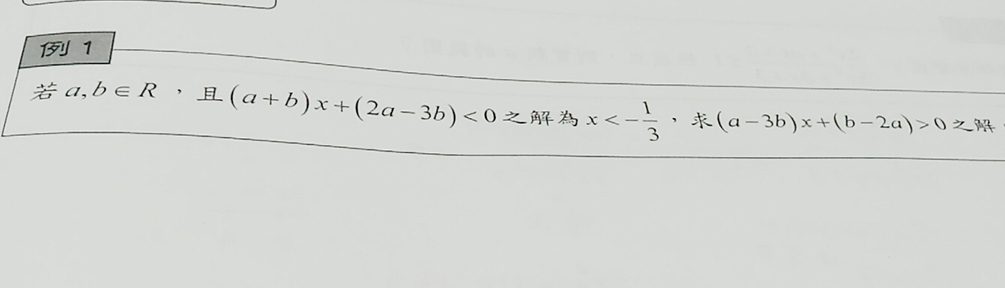 例 1
若 a,b∈R ，且(a+b)x+(2a−3b)<0之解為 x<−1/3，求(a−3b)x+(b−2a)>0之解